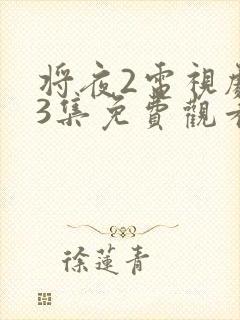 将夜2電視
3集免費觀
徐蓮青